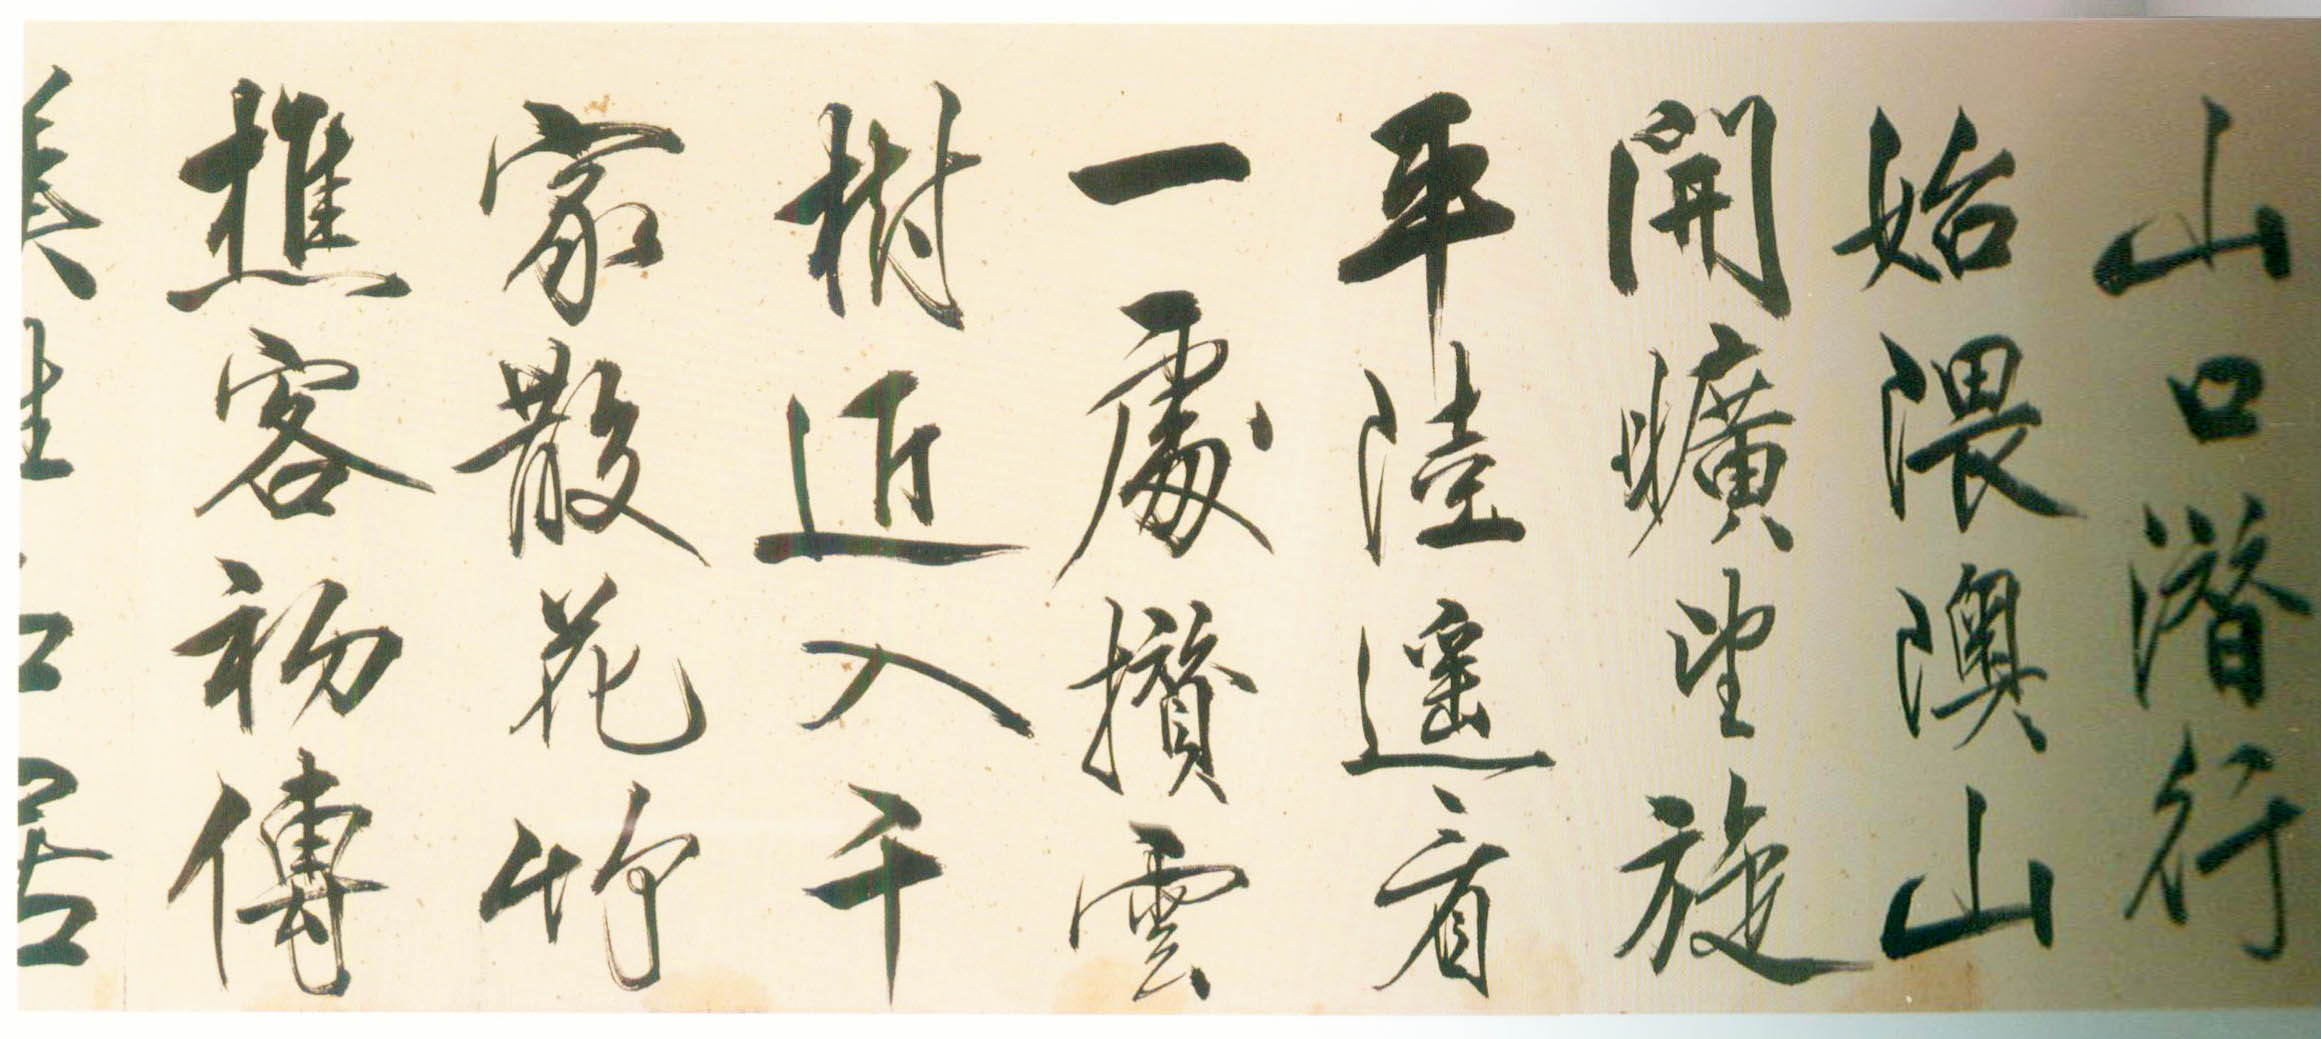 山口潛行
始隈隩山
開曠望旋
平陸遥看
一處攢雲
樹近入千
家散花竹
樵客初傳